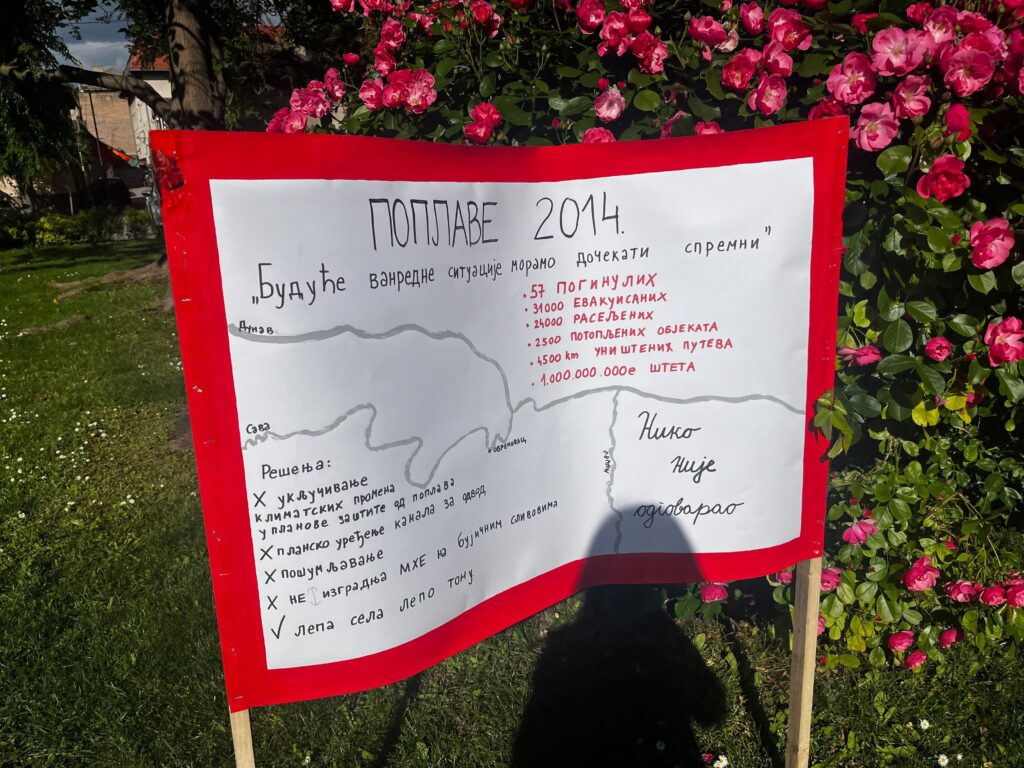 ПОПЛАВЕ 2014.
„Будуће ванредне ситуације морамо дочекати спремни”
• 57 ПОГИНУЛИХ
• 31000 ЕВАКУИСАНИХ
• 24000 РАСЕЉЕНИХ
• 2500 ПОТОПЉЕНИХ ОБЈЕКАТА
• 4500 km УНИШТЕНИХ ПУТЕВА
• 1.000.000.000е ШТЕТА
Дунав
Сава
ОБРЕНОВАЦ
Морава
Нико
није
одговарао
Решења:
X укључивање
климатских промена
у планове заштите од поплава
X планско уређење канала за одвод
X пошумљавање
X не изградња МХЕ на бујичним сливовима
√ лепа села лепо тону.